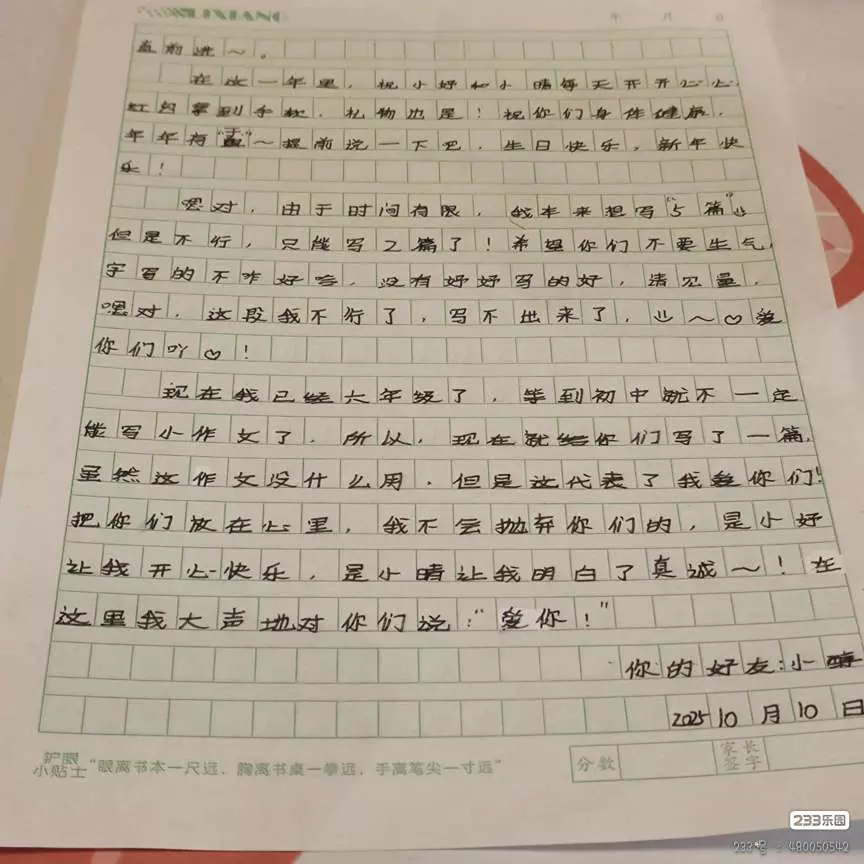 年 月 日
直前进～。
在这一年里，祝小好和小晴每天开开心心，
红包拿到手软，礼物也是！祝你们身体健康，
年年有"盖"～提前说一下吧，生日快乐，新年快
乐！
嗯对，由于时间有限，我本来想写"5篇"
但是不行，只能写2篇了！希望你们不要生气，
字写的不咋好哈，没有好好写的好，请见量，
嗯对，这段我不行了，写不出来了，～♡爱
你们吖♡！
现在我已经六年级了，等到初中就不一定
能写小作文了，所以，现在就给你们写了一篇，
虽然这作文没什么用，但是这代表了我爱你们！
把你们放在心里，我不会抛弃你们的，是小好
让我开心快乐，是小晴让我明白了真诚～！在
这里我大声地对你们说："爱你！"
你的好友：小醇
2025 10月10日
护眼小贴士"眼离书本一尺远，胸离书桌一拳远，手离笔尖一寸远"
分数 家长签字
233乐园
233号：480050542